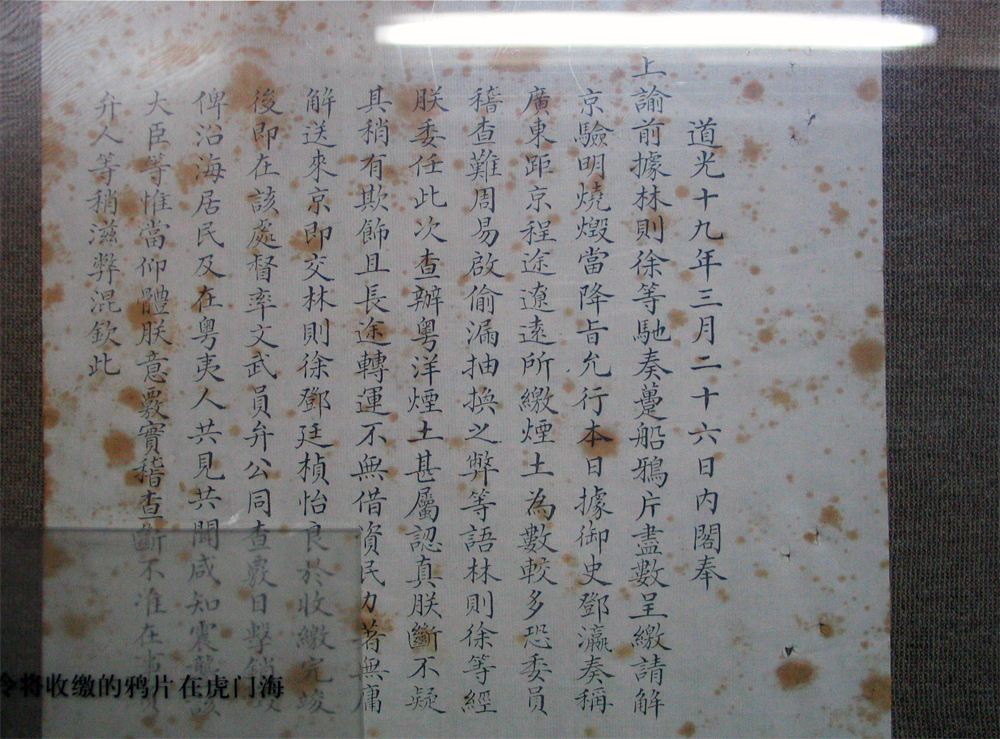 道光十九年三月二十六日內閣奉
上諭前據林則徐等馳奏躉船鴉片盡數呈繳請解
京驗明燒燬當降旨允行本日據御史鄧瀛奏稱
廣東距京程途遼遠所繳煙土為數較多恐委員
稽查難周易啟偷漏抽換之弊等語林則徐等經
朕委任此次查辦粵洋煙土甚屬認真朕斷不疑
其稍有欺飾且長途轉運不無借資民力著無庸
解送來京即交林則徐鄧廷楨怡良於收繳完竣
後即在該處督率文武員弁公同查覈目擊銷
俾沿海居民及在粵夷人共見共聞咸知震讋該
大臣等惟當仰體朕意覈實稽查斷不准在事
弁人等稍滋弊混欽此
令将收缴的鸦片在虎门海